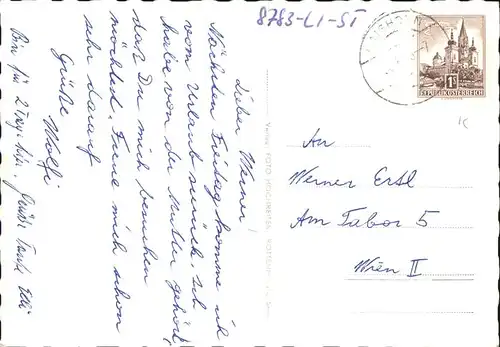 8783-L1-ST
Lieber Werner!
Nächsten Freitag komme ich
vom Urlaub zurück. Ich
habe von der Mutter gehört,
daß Du mich besuchen
möchtest. Freue mich schon
sehr darauf
Grüße Wolfi
Bin für 2 Tage hier. Grüße Tante Elli
1S
REPUBLIK ÖSTERREICH
An
Werner Ertl
Am Tabor 5
Wien II